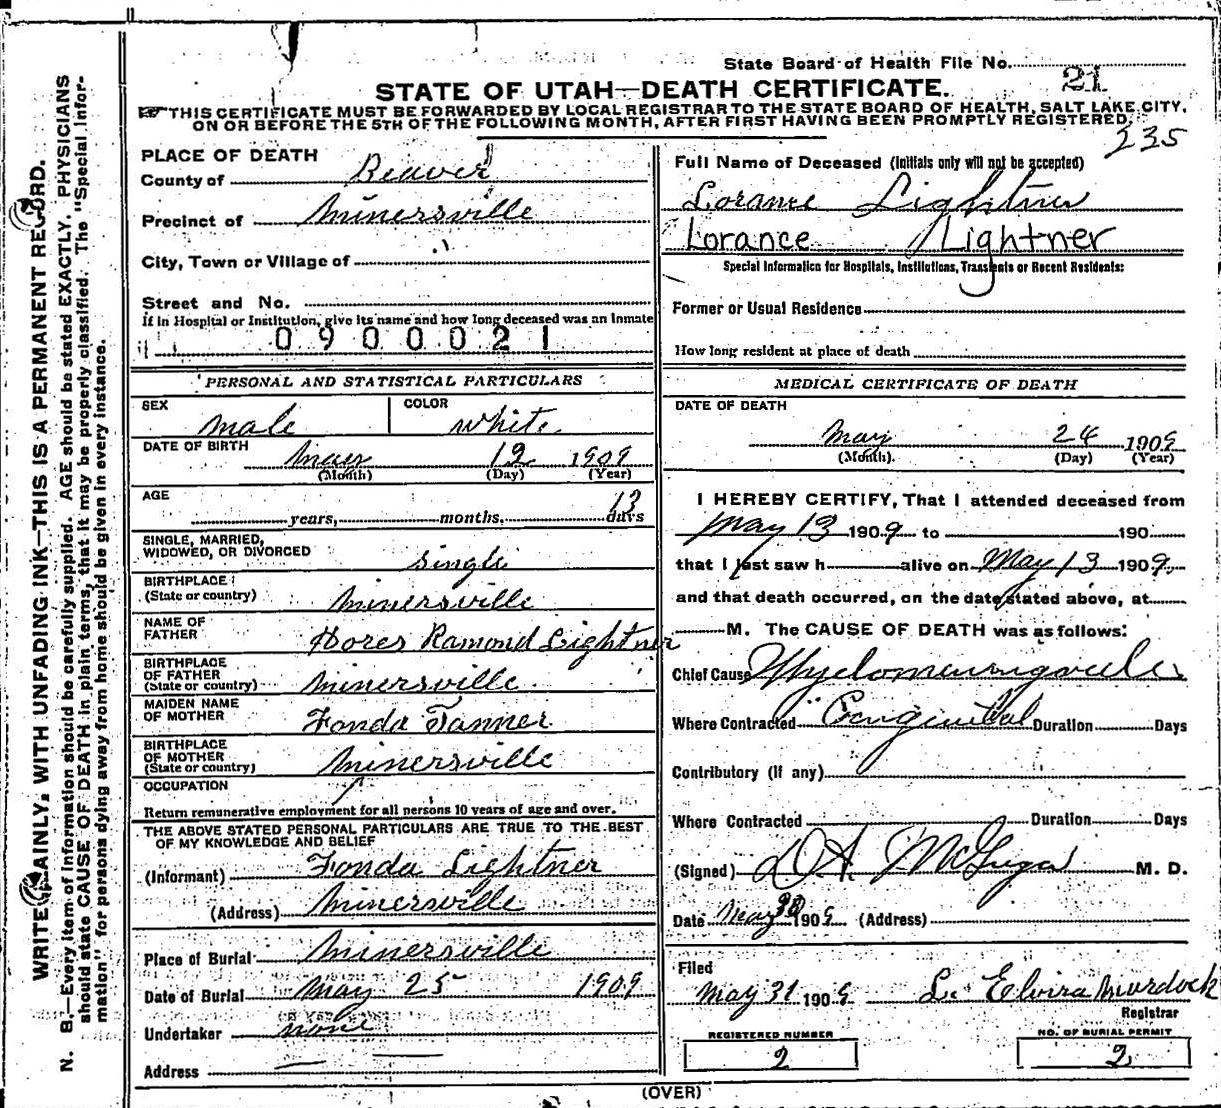 State Board of Health File No. 21
STATE OF UTAH—DEATH CERTIFICATE.
THIS CERTIFICATE MUST BE FORWARDED BY LOCAL REGISTRAR TO THE STATE BOARD OF HEALTH, SALT LAKE CITY,
ON OR BEFORE THE 5TH OF THE FOLLOWING MONTH, AFTER FIRST HAVING BEEN PROMPTLY REGISTERED.
235
PLACE OF DEATH
County of Beaver
Precinct of Minersville
City, Town or Village of
Street and No.
If in Hospital or Institution, give its name and how long deceased was an inmate
0900021
PERSONAL AND STATISTICAL PARTICULARS
SEX male COLOR white
DATE OF BIRTH 12 1909
(Month) (Day) (Year)
AGE 13
years, months, days
SINGLE, MARRIED,
WIDOWED, OR DIVORCED single
BIRTHPLACE
(State or country) Minersville
NAME OF
FATHER Dores Ramond Lightner
BIRTHPLACE
OF FATHER
(State or country) Minersville
MAIDEN NAME
OF MOTHER Fonda Tanner
BIRTHPLACE
OF MOTHER
(State or country) Minersville
OCCUPATION
Return remunerative employment for all persons 10 years of age and over.
THE ABOVE STATED PERSONAL PARTICULARS ARE TRUE TO THE BEST
OF MY KNOWLEDGE AND BELIEF
(Informant) Fonda Lightner
(Address) Minersville
Place of Burial Minersville
Date of Burial May 25 1909
Undertaker none
Address
Full Name of Deceased (Initials only will not be accepted)
Lorance Lightner
Lorance Lightner
Special Information for Hospitals, Institutions, Transients or Recent Residents:
Former or Usual Residence
How long resident at place of death
MEDICAL CERTIFICATE OF DEATH
DATE OF DEATH
May 24 1909
(Month). (Day) (Year)
I HEREBY CERTIFY, That I attended deceased from
May 13 1909 to 190
that I last saw h alive on May 13 1909
and that death occurred, on the date stated above, at
M. The CAUSE OF DEATH was as follows:
Chief Cause Myelomeningocele
Where Contracted Congenital Duration Days
Contributory (If any)
Where Contracted Duration Days
(Signed) M. D.
Date May 30 1909 (Address)
Filed
May 31 1909 L. Elvira Murdock
Registrar
REGISTERED NUMBER
2
NO. OF BURIAL PERMIT
2
(OVER)
WRITE PLAINLY, WITH UNFADING INK—THIS IS A PERMANENT RECORD.
N. B.—Every item of information should be carefully supplied. AGE should be stated EXACTLY. PHYSICIANS
should state CAUSE OF DEATH in plain terms, that it may be properly classified. The "Special Infor-
mation" for persons dying away from home should be given in every instance.